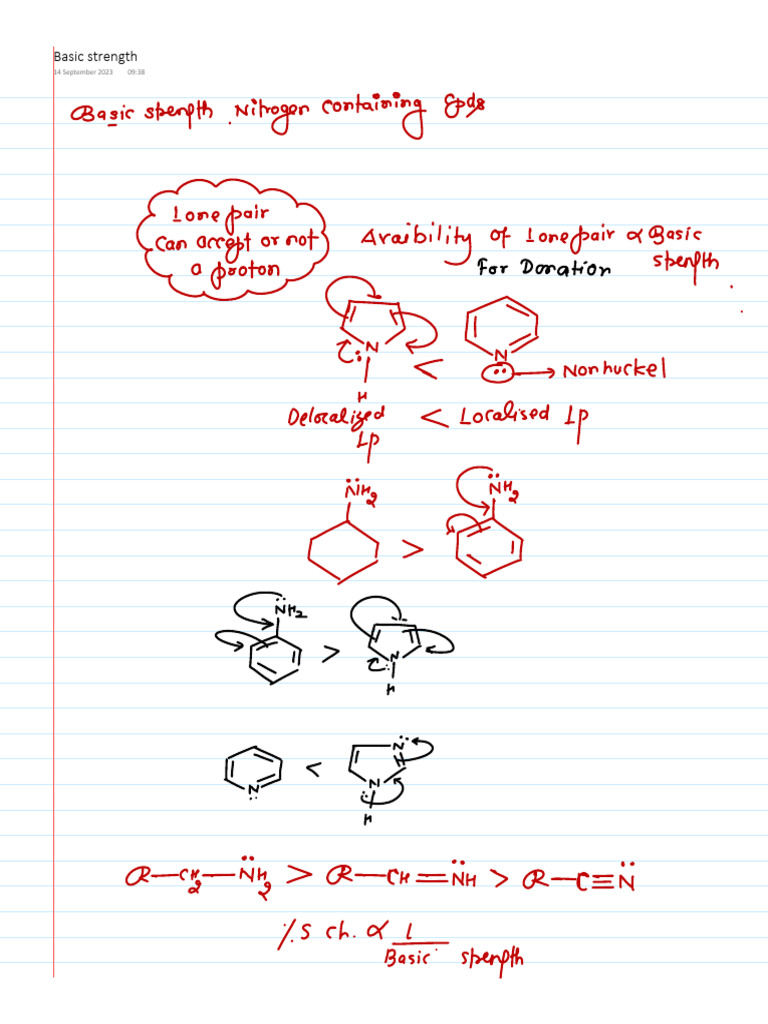 Basic strength
14 September 2023 09:38
Basic strength Nitrogen containing Cpds
Lone pair
can accept or not
a proton
Avaibility of Lone pair ∝ Basic
For Donation strength
N
H
N
<
Non huckel
Delocalized < Localised Lp
Lp
NH2 > NH2
NH2 > N
H
N < N
N
H
R—CH2—NH2 > R—CH=NH > R—C≡N
%S ch. ∝ 1
Basic strength